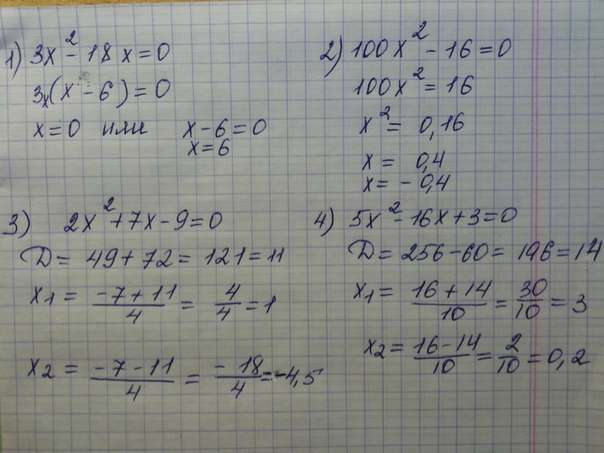 1) 3x² - 18x = 0
3x(x - 6) = 0
x = 0 или x - 6 = 0
x = 6
2) 100x² - 16 = 0
100x² = 16
x² = 0,16
x = 0,4
x = - 0,4
3) 2x² + 7x - 9 = 0
D = 49 + 72 = 121 = 11
x1 = (-7 + 11)/4 = 4/4 = 1
x2 = (-7 - 11)/4 = (-18)/4 = -4,5
4) 5x² - 16x + 3 = 0
D = 256 - 60 = 196 = 14
x1 = (16 + 14)/10 = 30/10 = 3
x2 = (16 - 14)/10 = 2/10 = 0,2